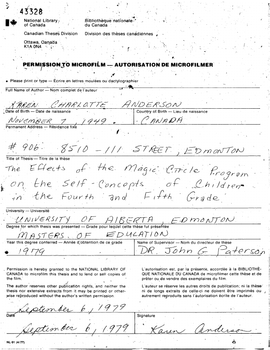 43328
National Library of Canada
Bibliothèque nationale du Canada
Canadian Theses Division
Division des thèses canadiennes
Ottawa, Canada
K1A 0N4
PERMISSION TO MICROFILM — AUTORISATION DE MICROFILMER
• Please print or type — Écrire en lettres moulées ou dactylographier
Full Name of Author — Nom complet de l'auteur
KAREN CHARLOTTE ANDERSON
Date of Birth — Date de naissance
Country of Birth — Lieu de naissance
NOVEMBER 7, 1949.
CANADA
Permanent Address — Résidence fixe
# 906. 8510 - 111 STREET, EDMONTON
Title of Thesis — Titre de la thèse
The Effects of the Magic Circle Program
on the Self-Concepts of Children
in the Fourth and Fifth Grade
University — Université
UNIVERSITY OF ALBERTA EDMONTON
Degree for which thesis was presented — Grade pour lequel cette thèse fut présentée
MASTERS OF EDUCATION
Year this degree conferred — Année d'obtention de ce grade
Name of Supervisor — Nom du directeur de thèse
1979
DR. JOHN G PATERSON
Permission is hereby granted to the NATIONAL LIBRARY OF CANADA to microfilm this thesis and to lend or sell copies of the film.
L'autorisation est, par la présente, accordée à la BIBLIOTHÈQUE NATIONALE DU CANADA de microfilmer cette thèse et de prêter ou de vendre des exemplaires du film.
The author reserves other publication rights, and neither the thesis nor extensive extracts from it may be printed or otherwise reproduced without the author's written permission.
L'auteur se réserve les autres droits de publication; ni la thèse ni de longs extraits de celle-ci ne doivent être imprimés ou autrement reproduits sans l'autorisation écrite de l'auteur.
September 6, 1979
Date
Signature
September 6, 1979
Karen Anderson